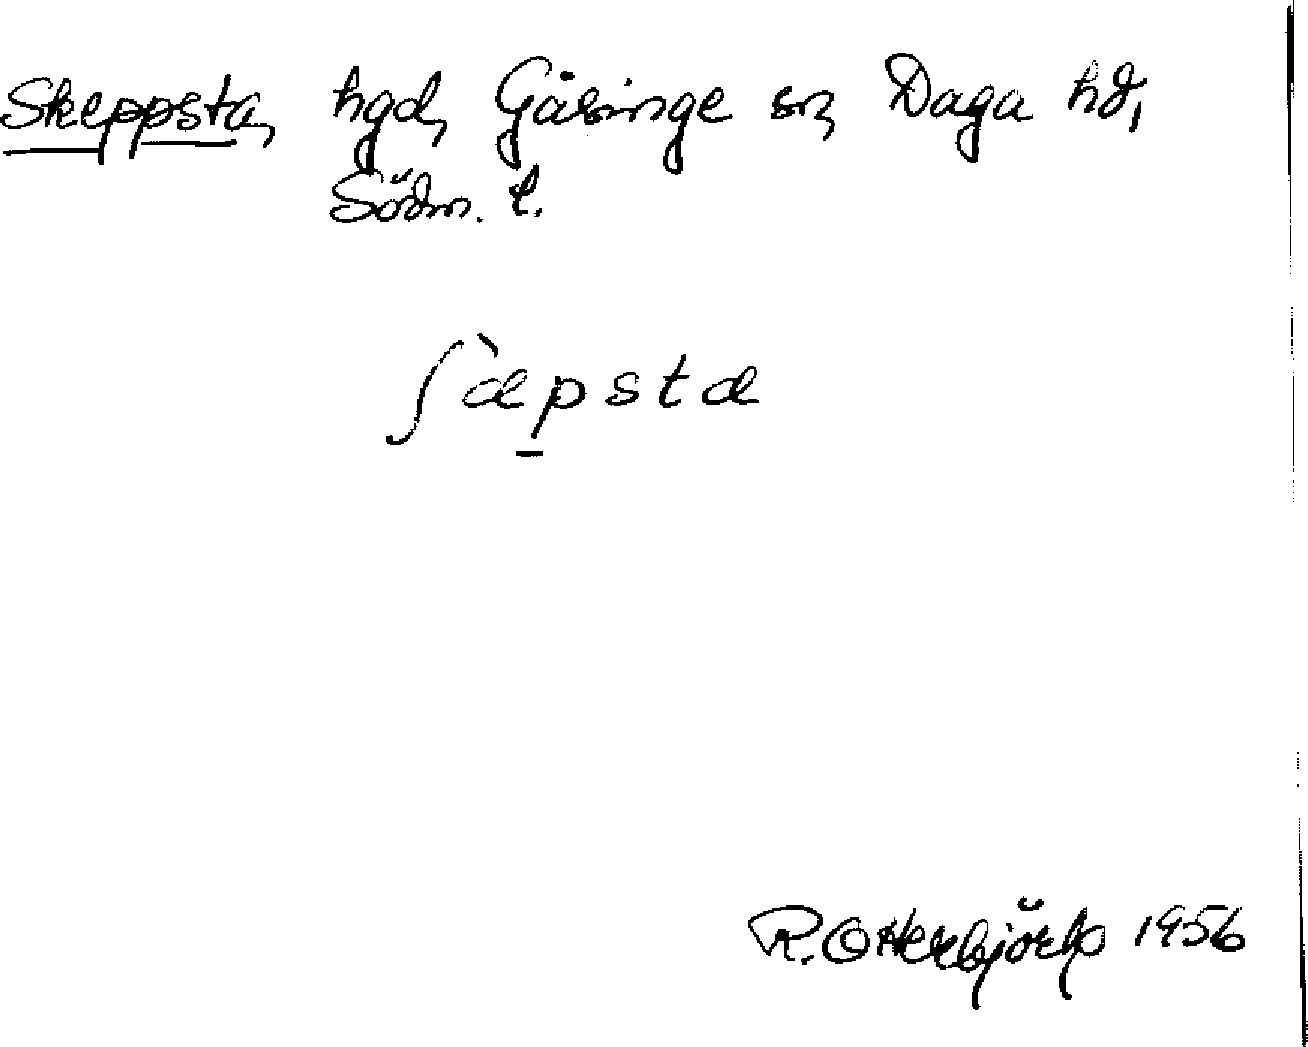 Skeppsta, hgd, Gåsinge sn, Daga hd,
Södm. l.
ʃæ̀p̠sta
R. Otterbjörk 1956